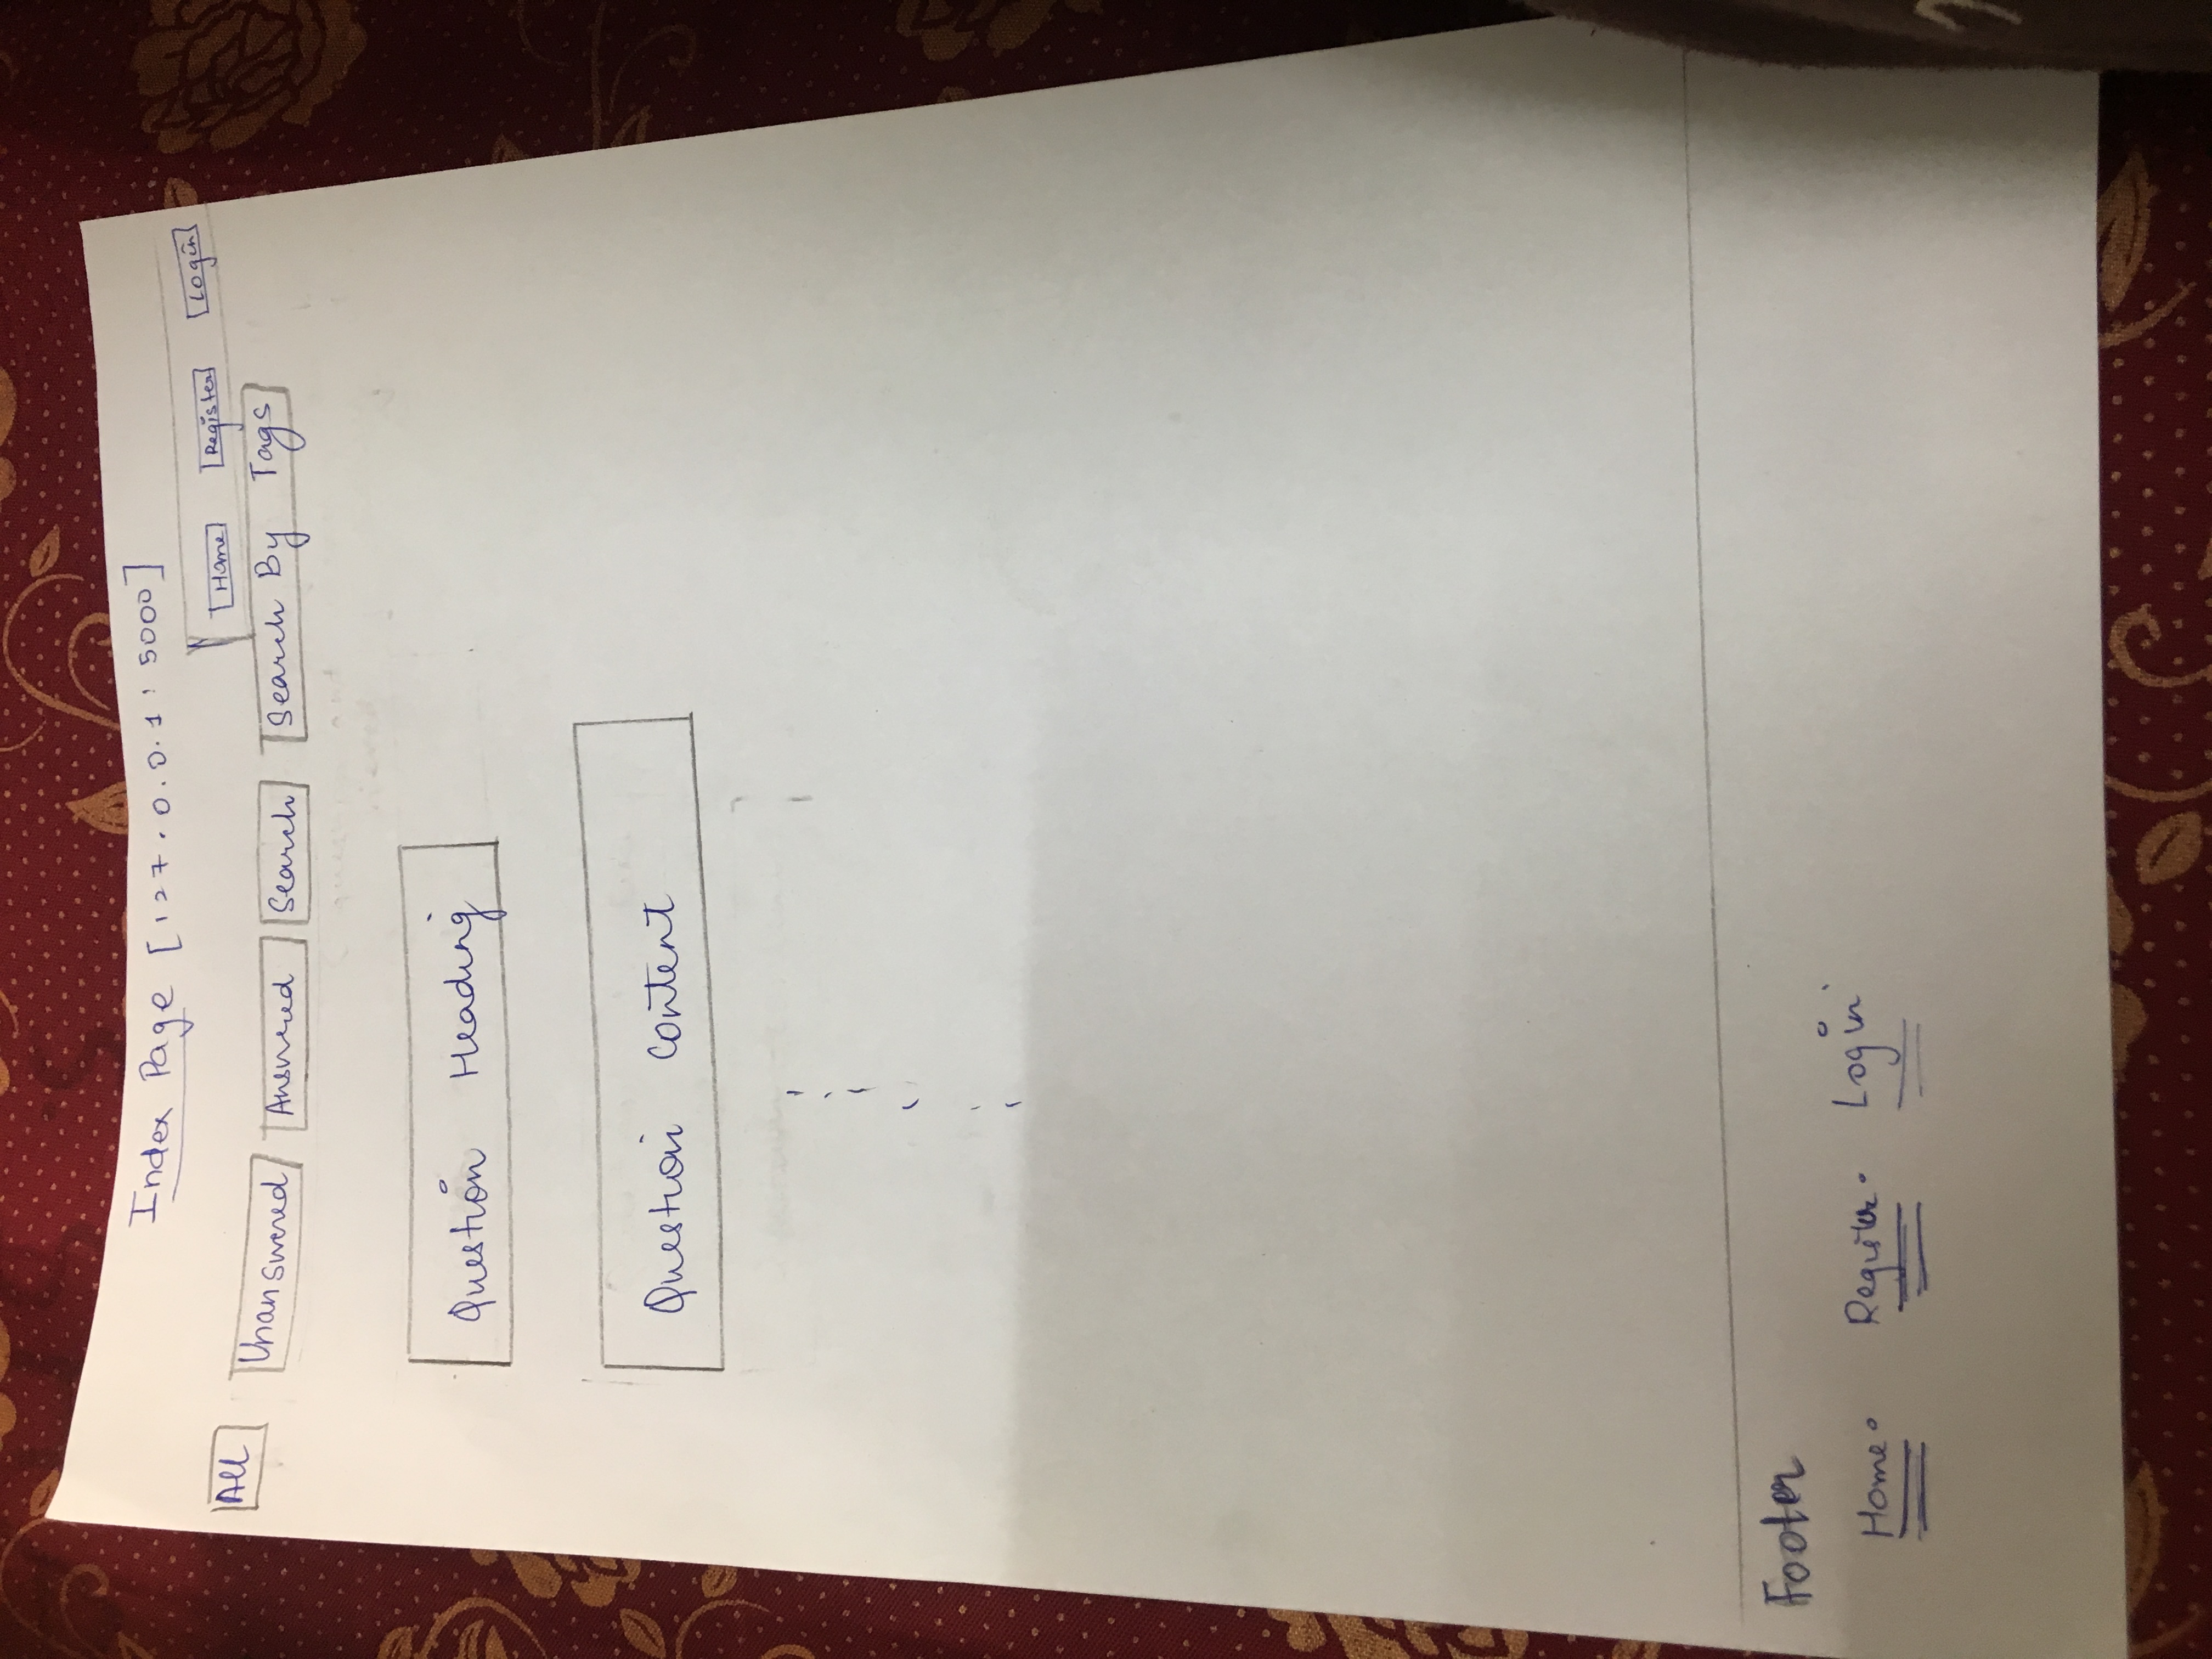 Index Page [127.0.0.1:5000]
Home Register Login
All Unanswered Answered Search Search By Tags
Question Heading
Question Content
Footer
Home. Register. Login